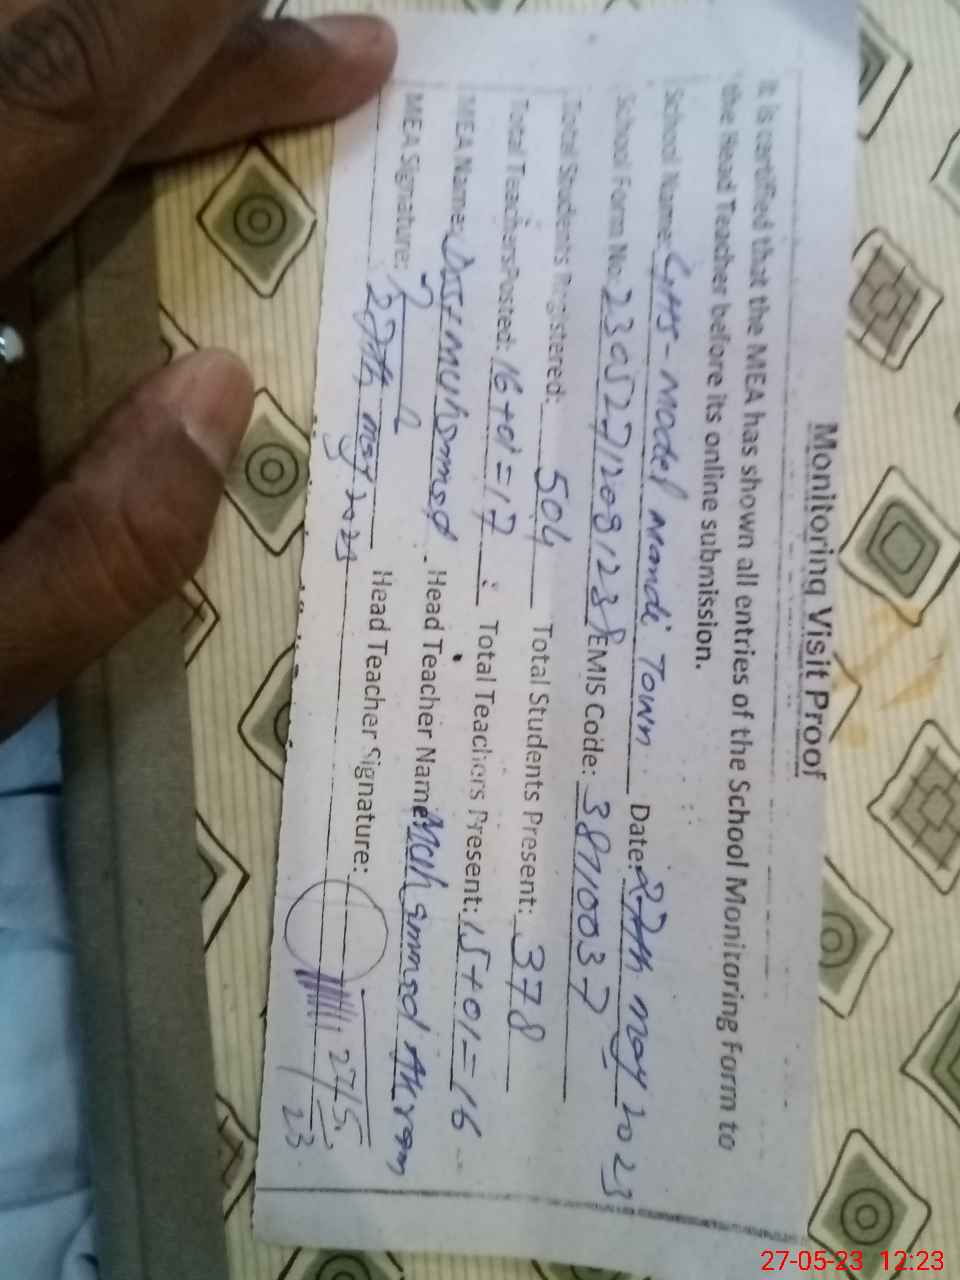 Monitoring Visit Proof
It is certified that the MEA has shown all entries of the School Monitoring Form to
the Head Teacher before its online submission.
School Name: GHS-Model Mandi Town Date: 27th may 2023
School Form No: EMIS Code: 38710037
Total Students Registered: 504 Total Students Present: 378
Total Teachers Posted: 16+01=17 Total Teachers Present: 15+01=16
MEA Name: Muhammad Head Teacher Name: Muhammad Akram
MEA Signature: Head Teacher Signature:
27th may 2023
27/5/23
27-05-23 12:23